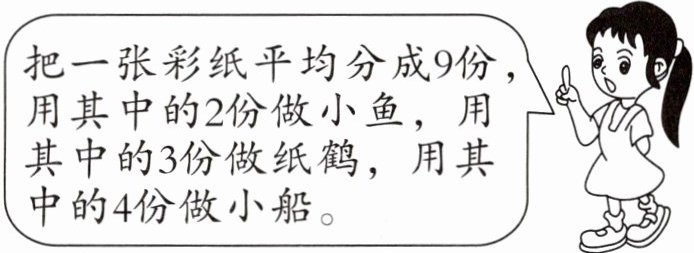 把一张彩纸平均分成9份，
用其中的2份做小鱼，用
其中的3份做纸鹤，用其
中的4份做小船。